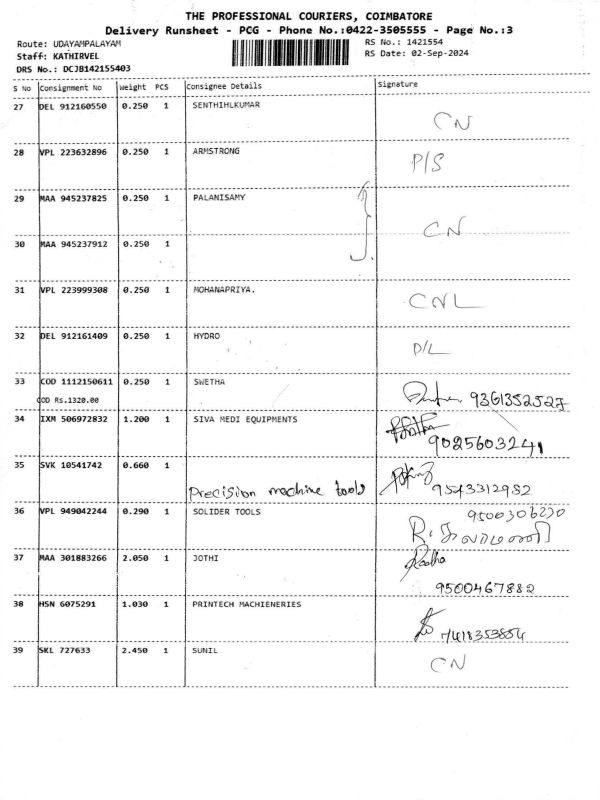 THE PROFESSIONAL COURIERS, COIMBATORE
Delivery Runsheet - PCG - Phone No.:0422-3505555 - Page No.:3
Route: UDAYAMPALAYAM RS No.: 1421554
Staff: KATHIRVEL RS Date: 02-Sep-2024
DRS No.: DCJB142155403
S No Consignment No Weight PCS Consignee Details Signature
27 DEL 912160550 0.250 1 SENTHIHLKUMAR CN
28 VPL 223632896 0.250 1 ARMSTRONG P/S
29 MAA 945237825 0.250 1 PALANISAMY
CN
30 MAA 945237912 0.250 1
31 VPL 223999308 0.250 1 MOHANAPRIYA. CNL
32 DEL 912161409 0.250 1 HYDRO D/L
33 COD 1112150611 0.250 1 SWETHA
COD Rs.1320.00 9361352527
34 IXM 506972832 1.200 1 SIVA MEDI EQUIPMENTS
9025603241
35 SVK 10541742 0.660 1
Precision machine tools 9543312982
36 VPL 949042244 0.290 1 SOLIDER TOOLS 9500306230
37 MAA 301883266 2.050 1 JOTHI Radha
9500467882
38 HSN 6075291 1.030 1 PRINTECH MACHIENERIES
7418353854
39 SKL 727633 2.450 1 SUNIL CN